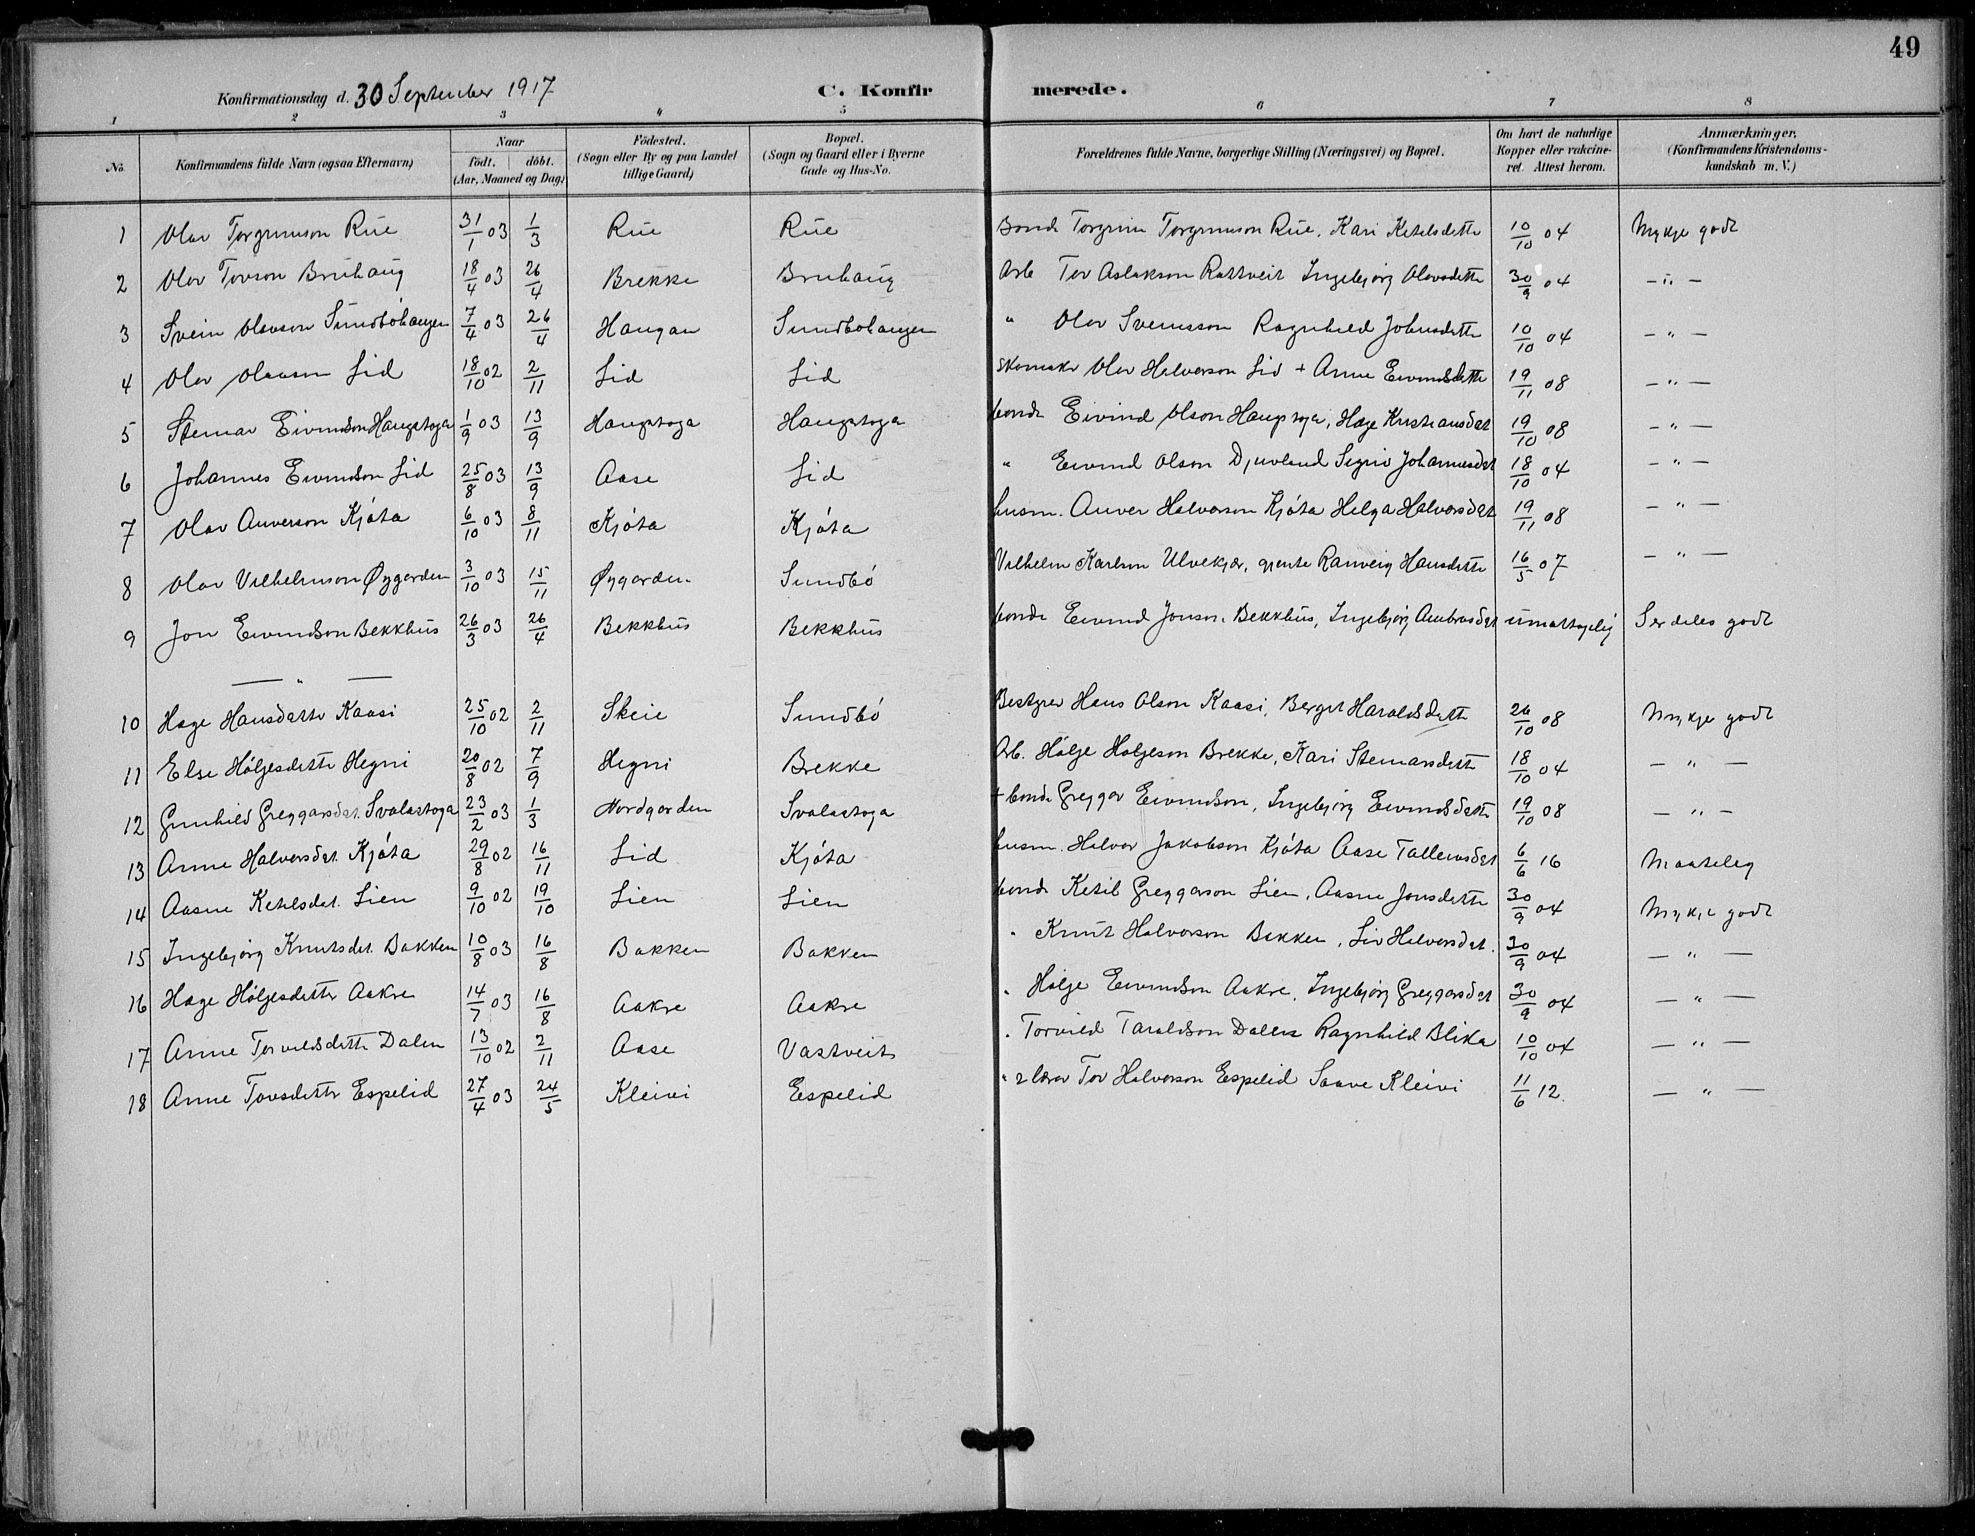 49
Konfirmationsdag d. 30 September 1917 C. Konfirmerede.
1 2 3 4 5 6 7 8
No. Konfirmandens fulde Navn (ogsaa Efternavn) Naar födt. döbt. (Aar, Maaned og Dag) Födested. (Sogn eller By og paa Landet tillige Gaard) Bopæl. (Sogn og Gaard eller i Byerne Gade og Hus-No. Forældrenes fulde Navne, borgerlige Stilling (Næringsvei) og Bopæl. Om havt de naturlige Kopper eller vakcineret. Attest herom. Anmærkninger, (Konfirmandens Kristendomskundskab m. V.)
1 Olav Torgrimson Rue 31/1 03 1/3 Rue Rue Bonde Torgrim Torgrimson Rue, Kari Ketelsdotte 10/10 04 Mykje godt
2 Olav Tovson Bruhaug 18/4 03 26/4 Brekke Bruhaug Arb Tov Aslakson Rattveit Ingebjörg Olavsdotte 30/9 04 — " —
3 Svein Olavson Sundböhaugen 7/4 03 26/4 Haugan Sundböhaugen " Olav Svensson Ragnhild Johnsdotte 10/10 04 — " —
4 Olav Olavson Lid 18/10 02 2/11 Lid Lid Skomaker Olav Halverson Lid + Anne Eivindsdotte 19/11 08 — " —
5 Steinar Eivindson Haugstoga 1/9 03 13/9 Haugstoga Haugstoga bonde Eivind Olson Haugstoga, Hæge Kristiansdot 19/10 08 — " —
6 Johannes Eivindson Lid 25/8 03 13/9 Aase Lid " Eivind Olson Djuvland Signe Johannesdot 18/10 04 — " —
7 Olav Anverson Kjöta 6/10 03 8/11 Kjöta Kjöta husm. Anver Halvorson Kjöta Helga Halvorsdot 19/11 08 — " —
8 Olav Vilhelmson Øygarden 3/10 03 15/11 Øygarden Sundbö Vilhelm Karlson Ulvekjær, gjente Ranveig Hansdotte 16/5 07 — " —
9 Jon Eivindson Bekkhus 26/3 03 26/4 Bekkhus Bekkhus bonde Eivind Jonson Bekkhus, Ingebjörg Ambrosdot umottagelig Serdeles godt
— " —
10 Hæge Hansdotte Kaasi 25/10 02 2/11 Skeie Sundbö Bestyrer Hans Olson Kaasi, Berget Haraldsdotte 26/10 08 Mykje godt
11 Else Höljesdotte Hegni 20/8 02 7/9 Hegni Brekke Arb. Hölje Höljeson Brekke, Kari Steinarsdotte 18/10 04 — " —
12 Gunhild Greggarsdot. Svalastoga 23/2 03 1/3 Nordgarden Svalastoga + bonde Greggar Eivindson, Ingebjörg Eivindsdotte 19/10 08 — " —
13 Anne Halvorsdot. Kjöta 29/8 02 16/11 Lid Kjöta husm. Halvor Jakobson Kjöta Aase Talleivsdot 6/6 16 Maateleg
14 Aasne Ketelsdot. Lien 9/10 02 19/10 Lien Lien bonde Ketil Greggarson Lien, Aasne Jonsdotte 30/9 04 Mykje godt
15 Ingebjörg Knutsdot. Bakken 10/8 03 16/8 Bakken Bakken " Knut Halvorson Bakken, Liv Halvorsdot. 30/9 04 — " —
16 Hæge Höljesdotte Aakre 14/7 03 16/8 Aakre Aakre " Hölje Eivindson Aakre, Ingebjörg Greggarsdot 30/9 04 — " —
17 Anne Torvildsdotte Dalen 13/10 02 2/11 Aase Vastveit " Torvild Taraldson Dalen Ragnhild Blika 10/10 04 — " —
18 Anne Tovsdotte Espelid 27/4 03 24/5 Kleivi Espelid " lærer Tov Halvorson Espelid Saave Kleivi 11/6 12. — " —